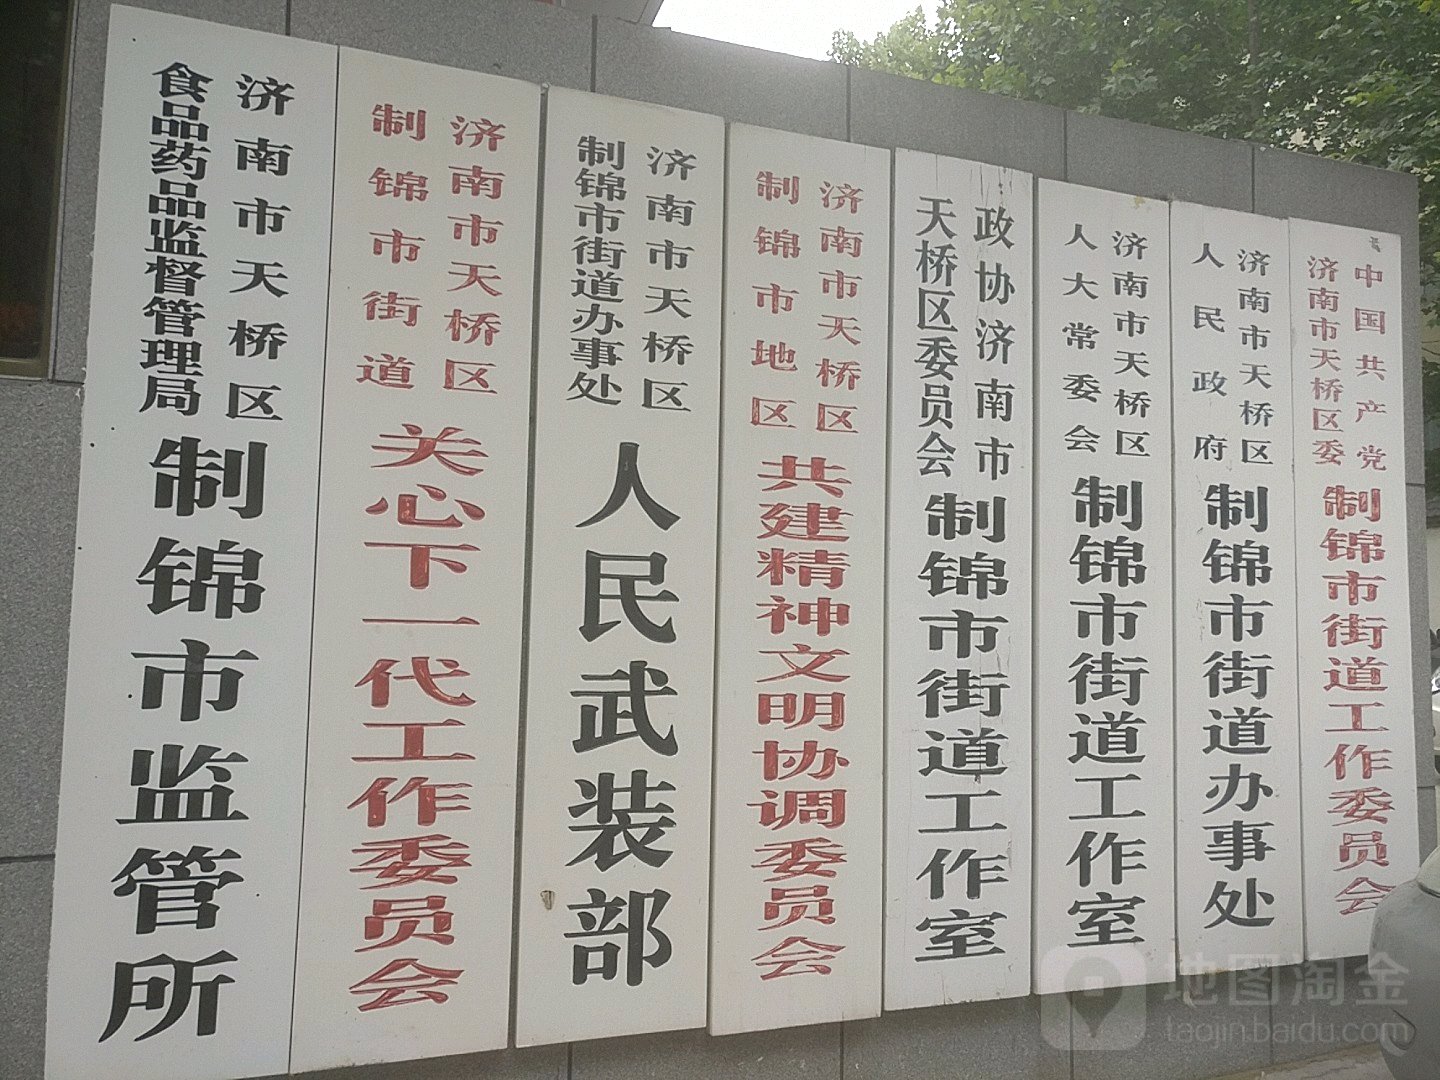 中国共产党
济南市天桥区委
制锦市街道工作委员会
济南市天桥区
人民政府
制锦市街道办事处
济南市天桥区
人大常委会
制锦市街道工作室
政协济南市
天桥区委员会
制锦市街道工作室
济南市天桥区
制锦市地区
共建精神文明协调委员会
济南市天桥区
制锦市街道办事处
人民武装部
济南市天桥区
制锦市街道
关心下一代工作委员会
济南市天桥区
食品药品监督管理局
制锦市监管所
地图淘金
taojin.baidu.com